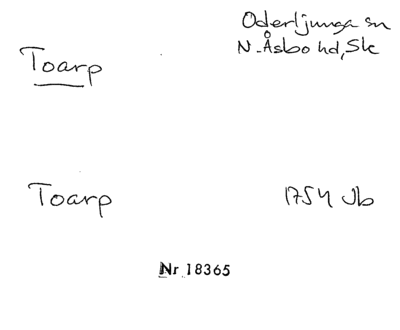 Oderljunga sn
N. Åsbo hd, Sk
Toarp
Toarp 1754 Jb
Nr 18365